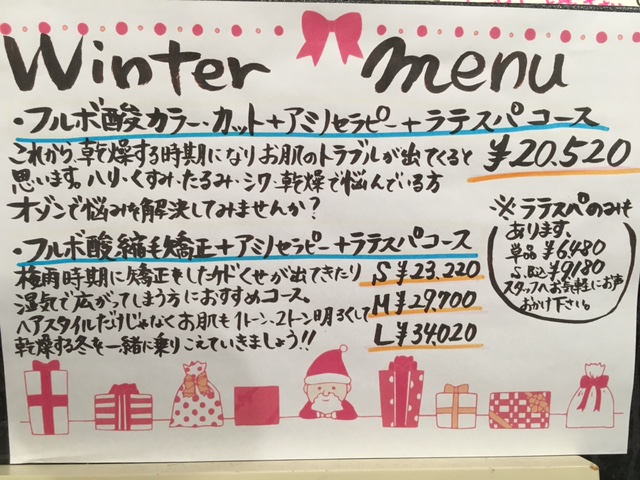 Winter menu
・フルボ酸カラー・カット+アミノセラピー+ラテスパコース
これから、乾燥する時期になりお肌のトラブルが出てくると
¥20,520
思います。ハリ・くすみ・たるみ・シワ・乾燥で悩んでいる方
オゾンで悩みを解決してみませんか?
・フルボ酸縮毛矯正+アミノセラピー+ラテスパコース
梅雨時期に矯正をしたケドくせが出てきたり
S ¥23,220
湿気で広がってしまう方におすすめコース。
M ¥29,700
ヘアスタイルだけじゃなくお肌も1トーン、2トーン明るくして
L ¥34,020
乾燥する冬を一緒に乗りこえていきましょう!!
※ラテスパのみも
あります。
単品 ¥6,480
S.B込 ¥9,180
スタッフへお気軽にお声
おかけ下さい。